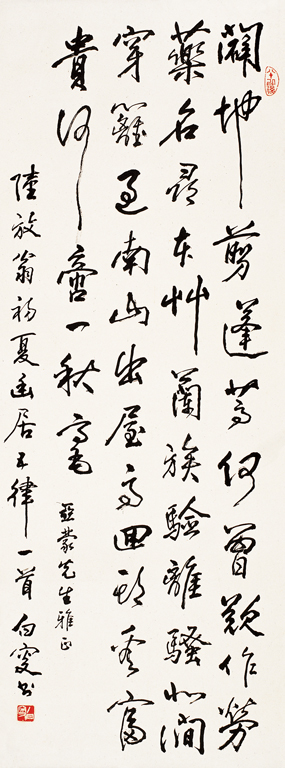 闢地剪蓬蒿何曾歎作勞
藥名尋本草蘭族驗離騷北澗
穿籬過南山出屋高回頭看富
貴何啻一秋毫
亞蒙先生雅正
陸放翁初夏幽居五律一首 书